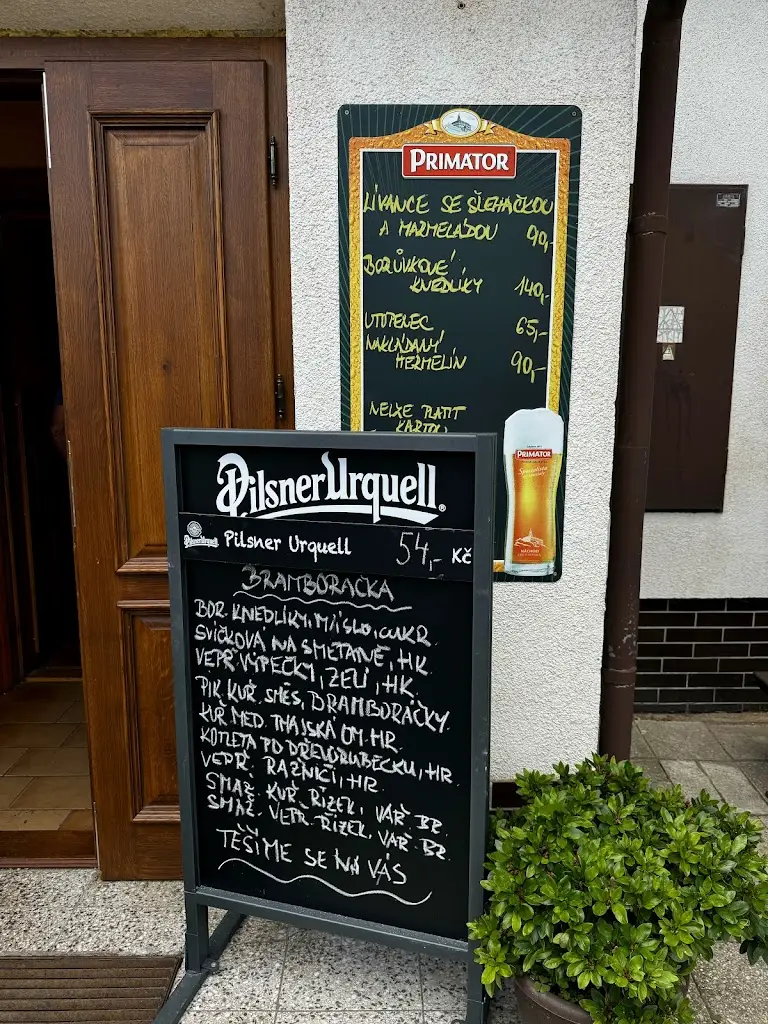 PRIMATOR
LÍVANCE SE ŠLEHAČKOU
A MARMELÁDOU 90,-
BORŮVKOVÉ
KNEDLÍKY 140,-
UTOPENEC 65,-
NAKLÁDANÝ
HERMELÍN 90,-
NELZE PLATIT
KARTOU
PRIMATOR
NÁCHOD
Pilsner Urquell
Pilsner Urquell 54,- Kč
BRAMBORAČKA
BOR. KNEDLÍKY, MÁSLO, CUKR
SVÍČKOVÁ NA SMETANĚ, HK
VEPŘ. VÝPEČKY, ZELÍ, HK.
PIK. KUŘ. SMĚS, BRAMBORÁČKY
KUŘ. MED. THAJSKÁ OM. HR.
KOTLETA PO DŘEVORUBECKU, HR.
VEPŘ. RAŽNIČÍ, HR
SMAŽ. KUŘ. ŘÍZEK, VAŘ BR.
SMAŽ. VEPŘ. ŘÍZEK, VAŘ BR.
TĚŠÍME SE NA VÁS